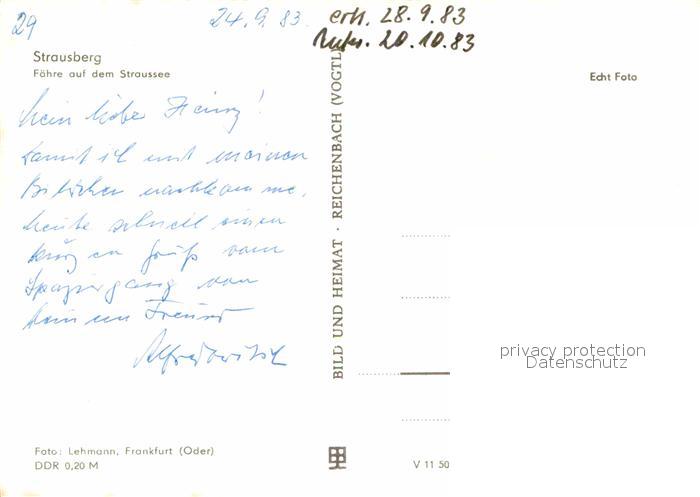 29
24.9.83.
erh. 28.9.83
20.10.83
Strausberg
Fähre auf dem Straussee
Echt Foto
Mein lieber Heinz!
Damit ich mit meinen
Bildchen nachkomme,
heute schnell einen
kurzen Gruß vom
Spaziergang von
Deinem Freund
BILD UND HEIMAT · REICHENBACH (VOGTL
privacy protection
Datenschutz
Foto: Lehmann, Frankfurt (Oder)
DDR 0,20 M
V 11 50